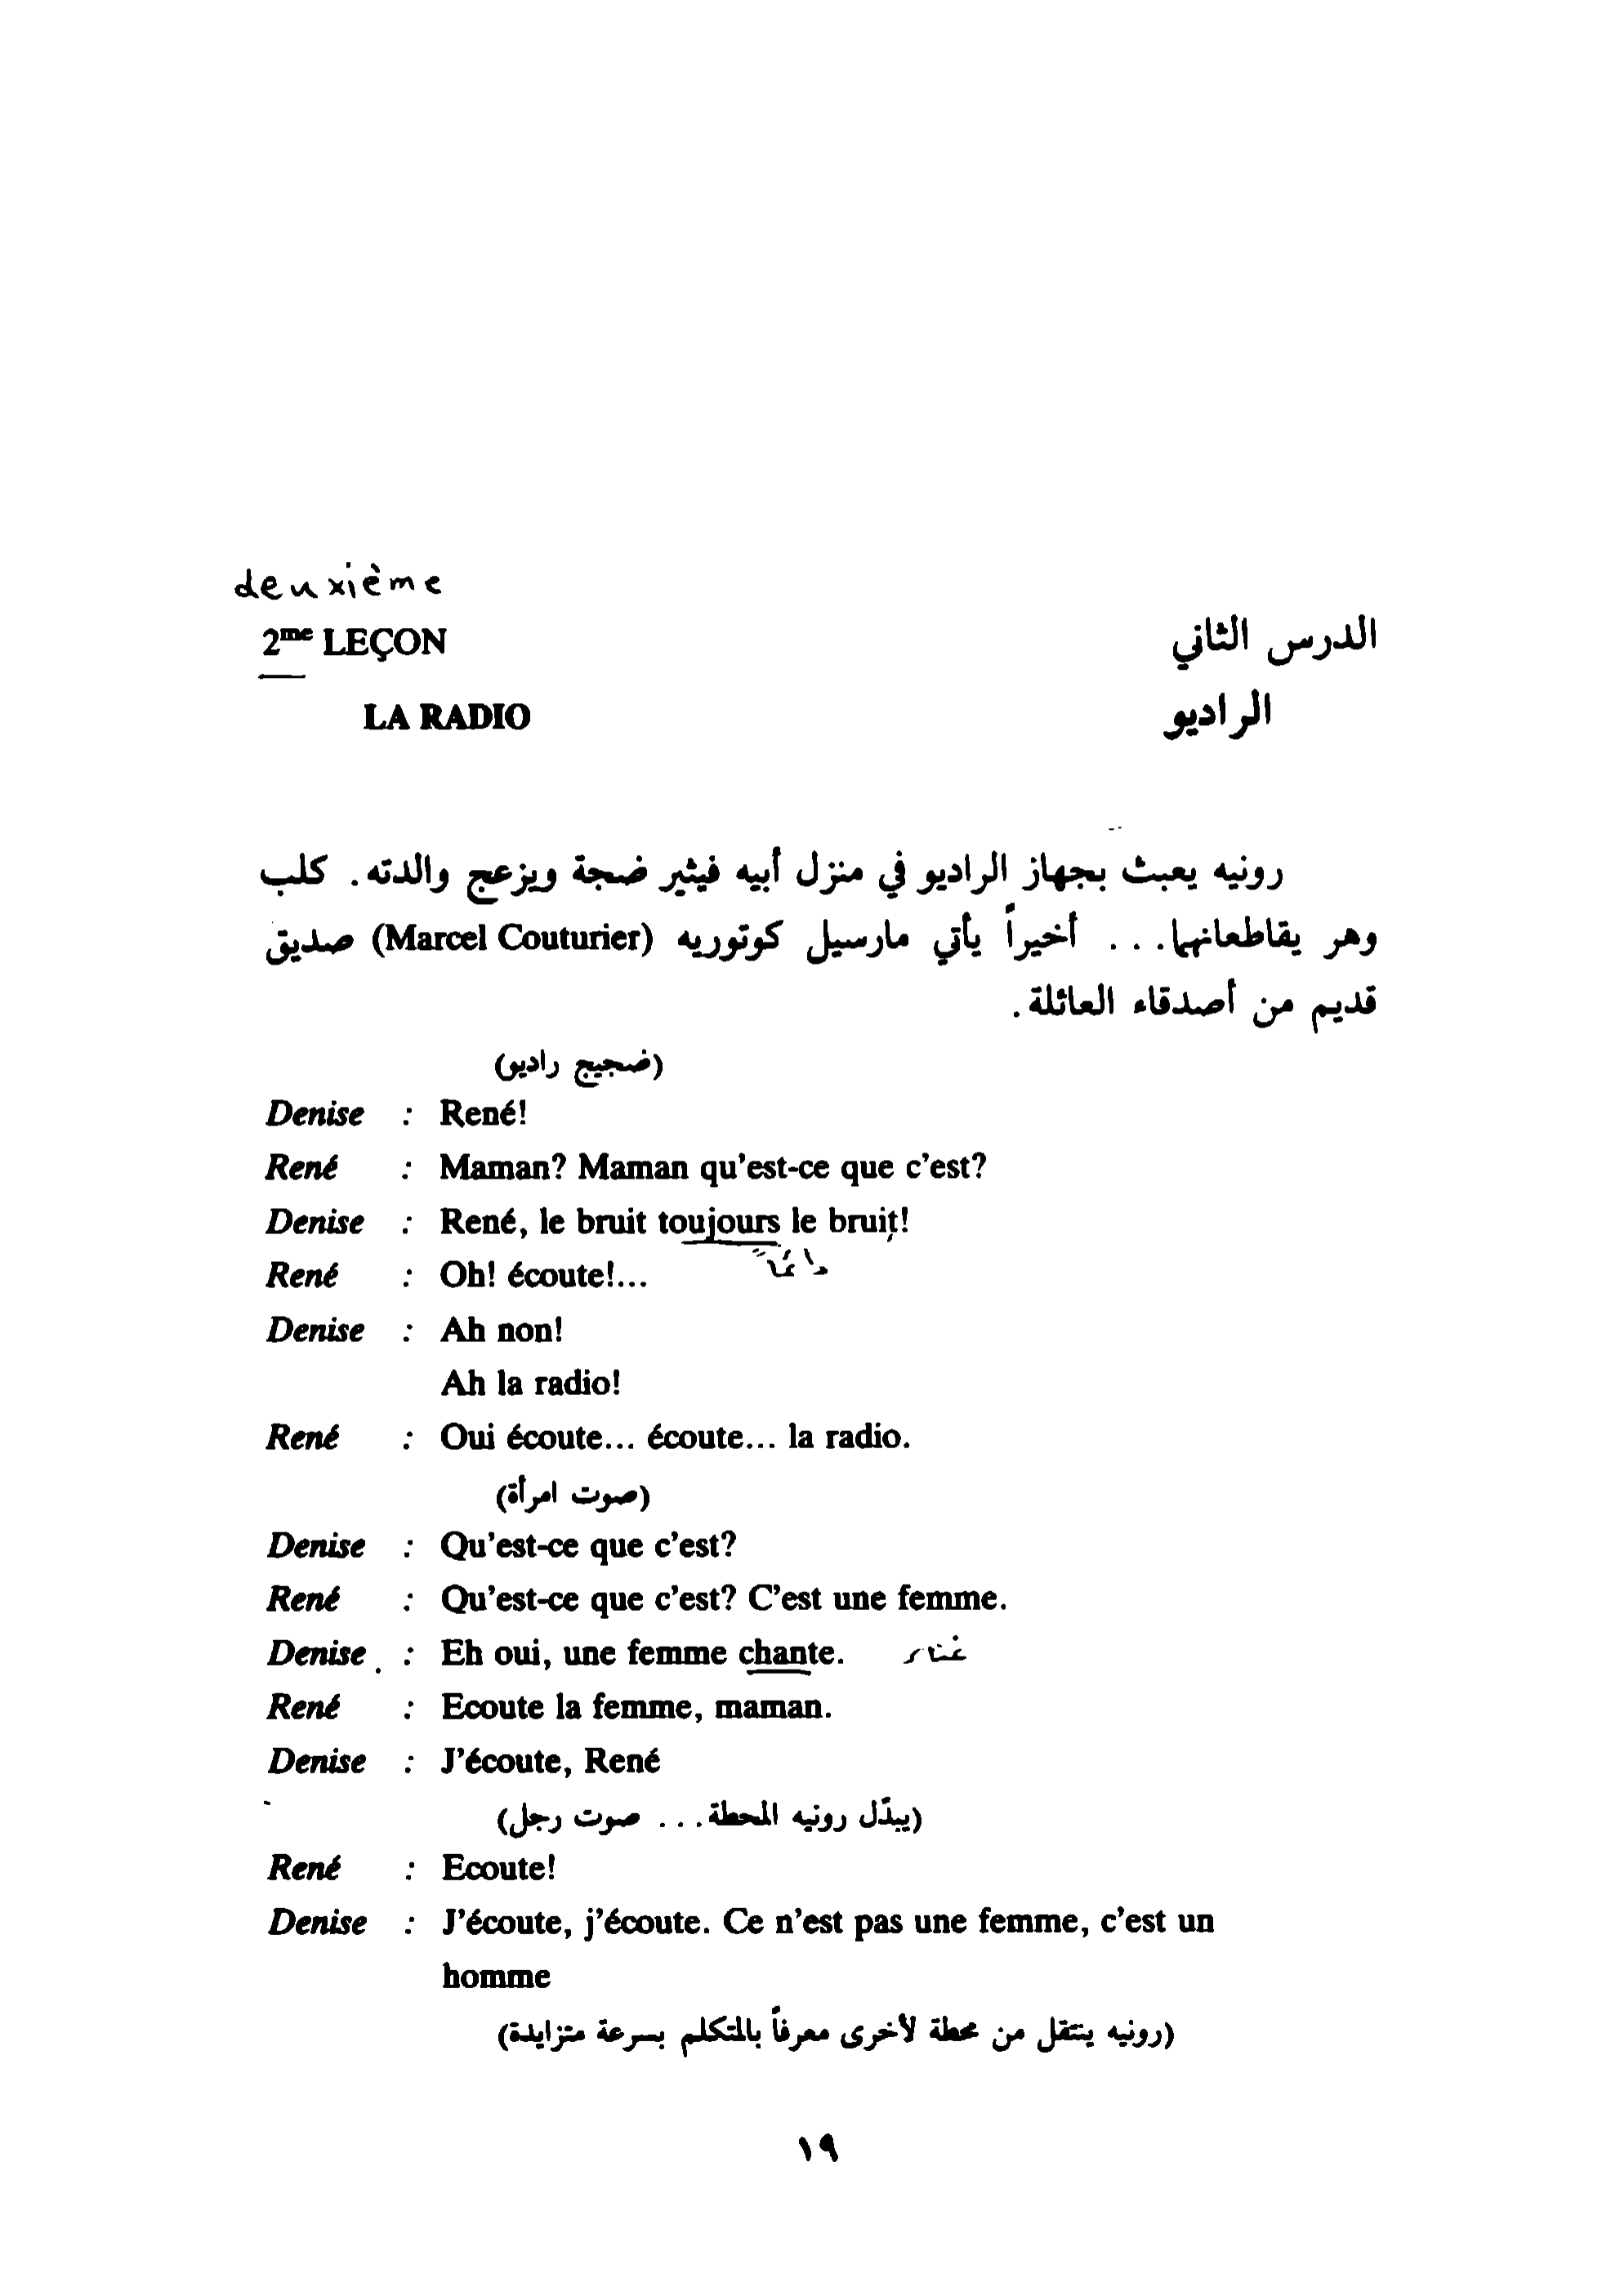 deuxième
2me LEÇON
الدرس الثاني
LA RADIO
الراديو
رونيه يعبث بجهاز الراديو في منزل أبيه فيثير ضجة ويزعج والدته. كلب
وهر يقاطعانهما... أخيراً يأتي مارسيل كوتوريه (Marcel Couturier) صديق
قديم من أصدقاء العائلة.
(ضجيج راديو)
Denise : René!
René : Maman? Maman qu'est-ce que c'est?
Denise : René, le bruit toujours le bruit!
دائماً
René : Oh! écoute!...
Denise : Ah non!
Ah la radio!
René : Oui écoute... écoute... la radio.
(صوت امرأة)
Denise : Qu'est-ce que c'est?
René : Qu'est-ce que c'est? C'est une femme.
Denise : Eh oui, une femme chante. غناء
René : Ecoute la femme, maman.
Denise : J'écoute, René
(يبدّل رونيه المحطة... صوت رجل)
René : Ecoute!
Denise : J'écoute, j'écoute. Ce n'est pas une femme, c'est un
homme
(رونيه ينتقل من محطة لأخرى معرفاً بالمتكلم بسرعة متزايدة)
١٩